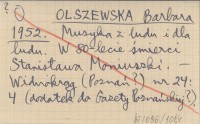 ?
O OLSZEWSKA Barbara
1952. Muzyka z ludu i dla
ludu. W 80-lecie śmierci
Stanisława Moniuszki. –
Widnokrąg (Poznań?) nr 24:
4 (dodatek do Gazety Poznańskiej?)